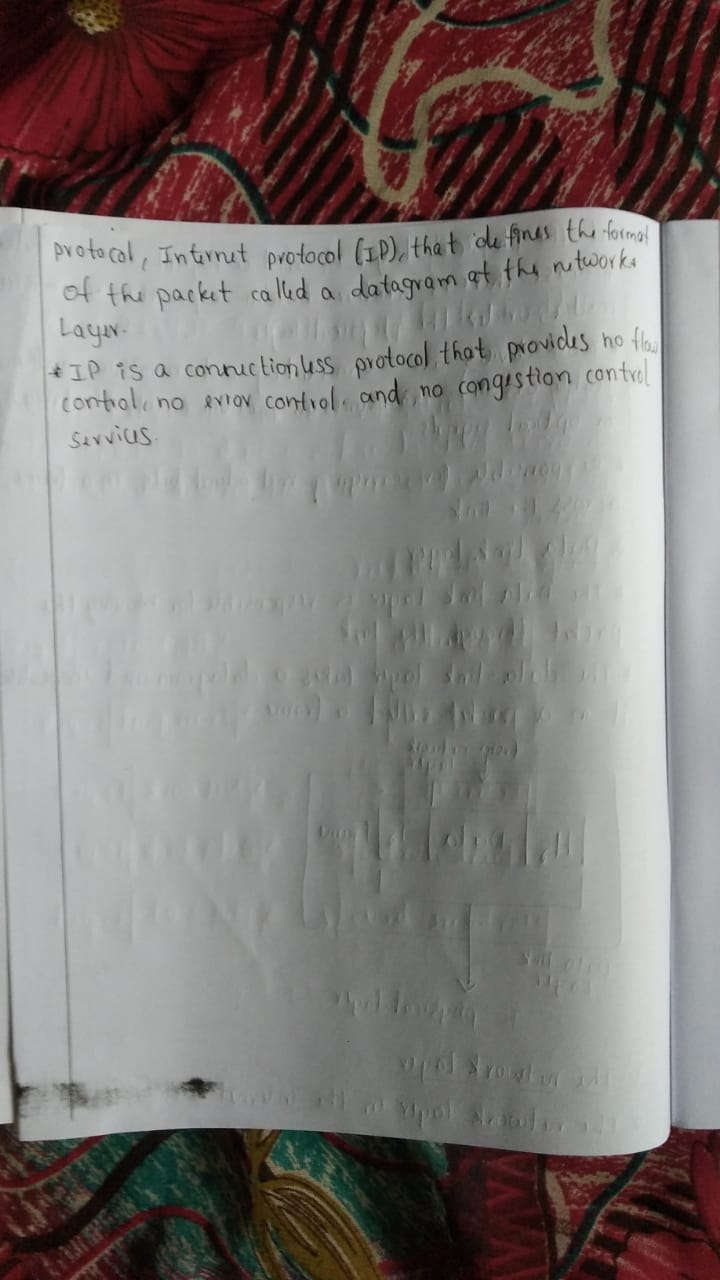 protocol, Internet protocol (IP), that defines the format
of the packet called a datagram at the network
Layer.
* IP is a connectionless protocol that provides no flow
control, no error control, and no congestion control
services.